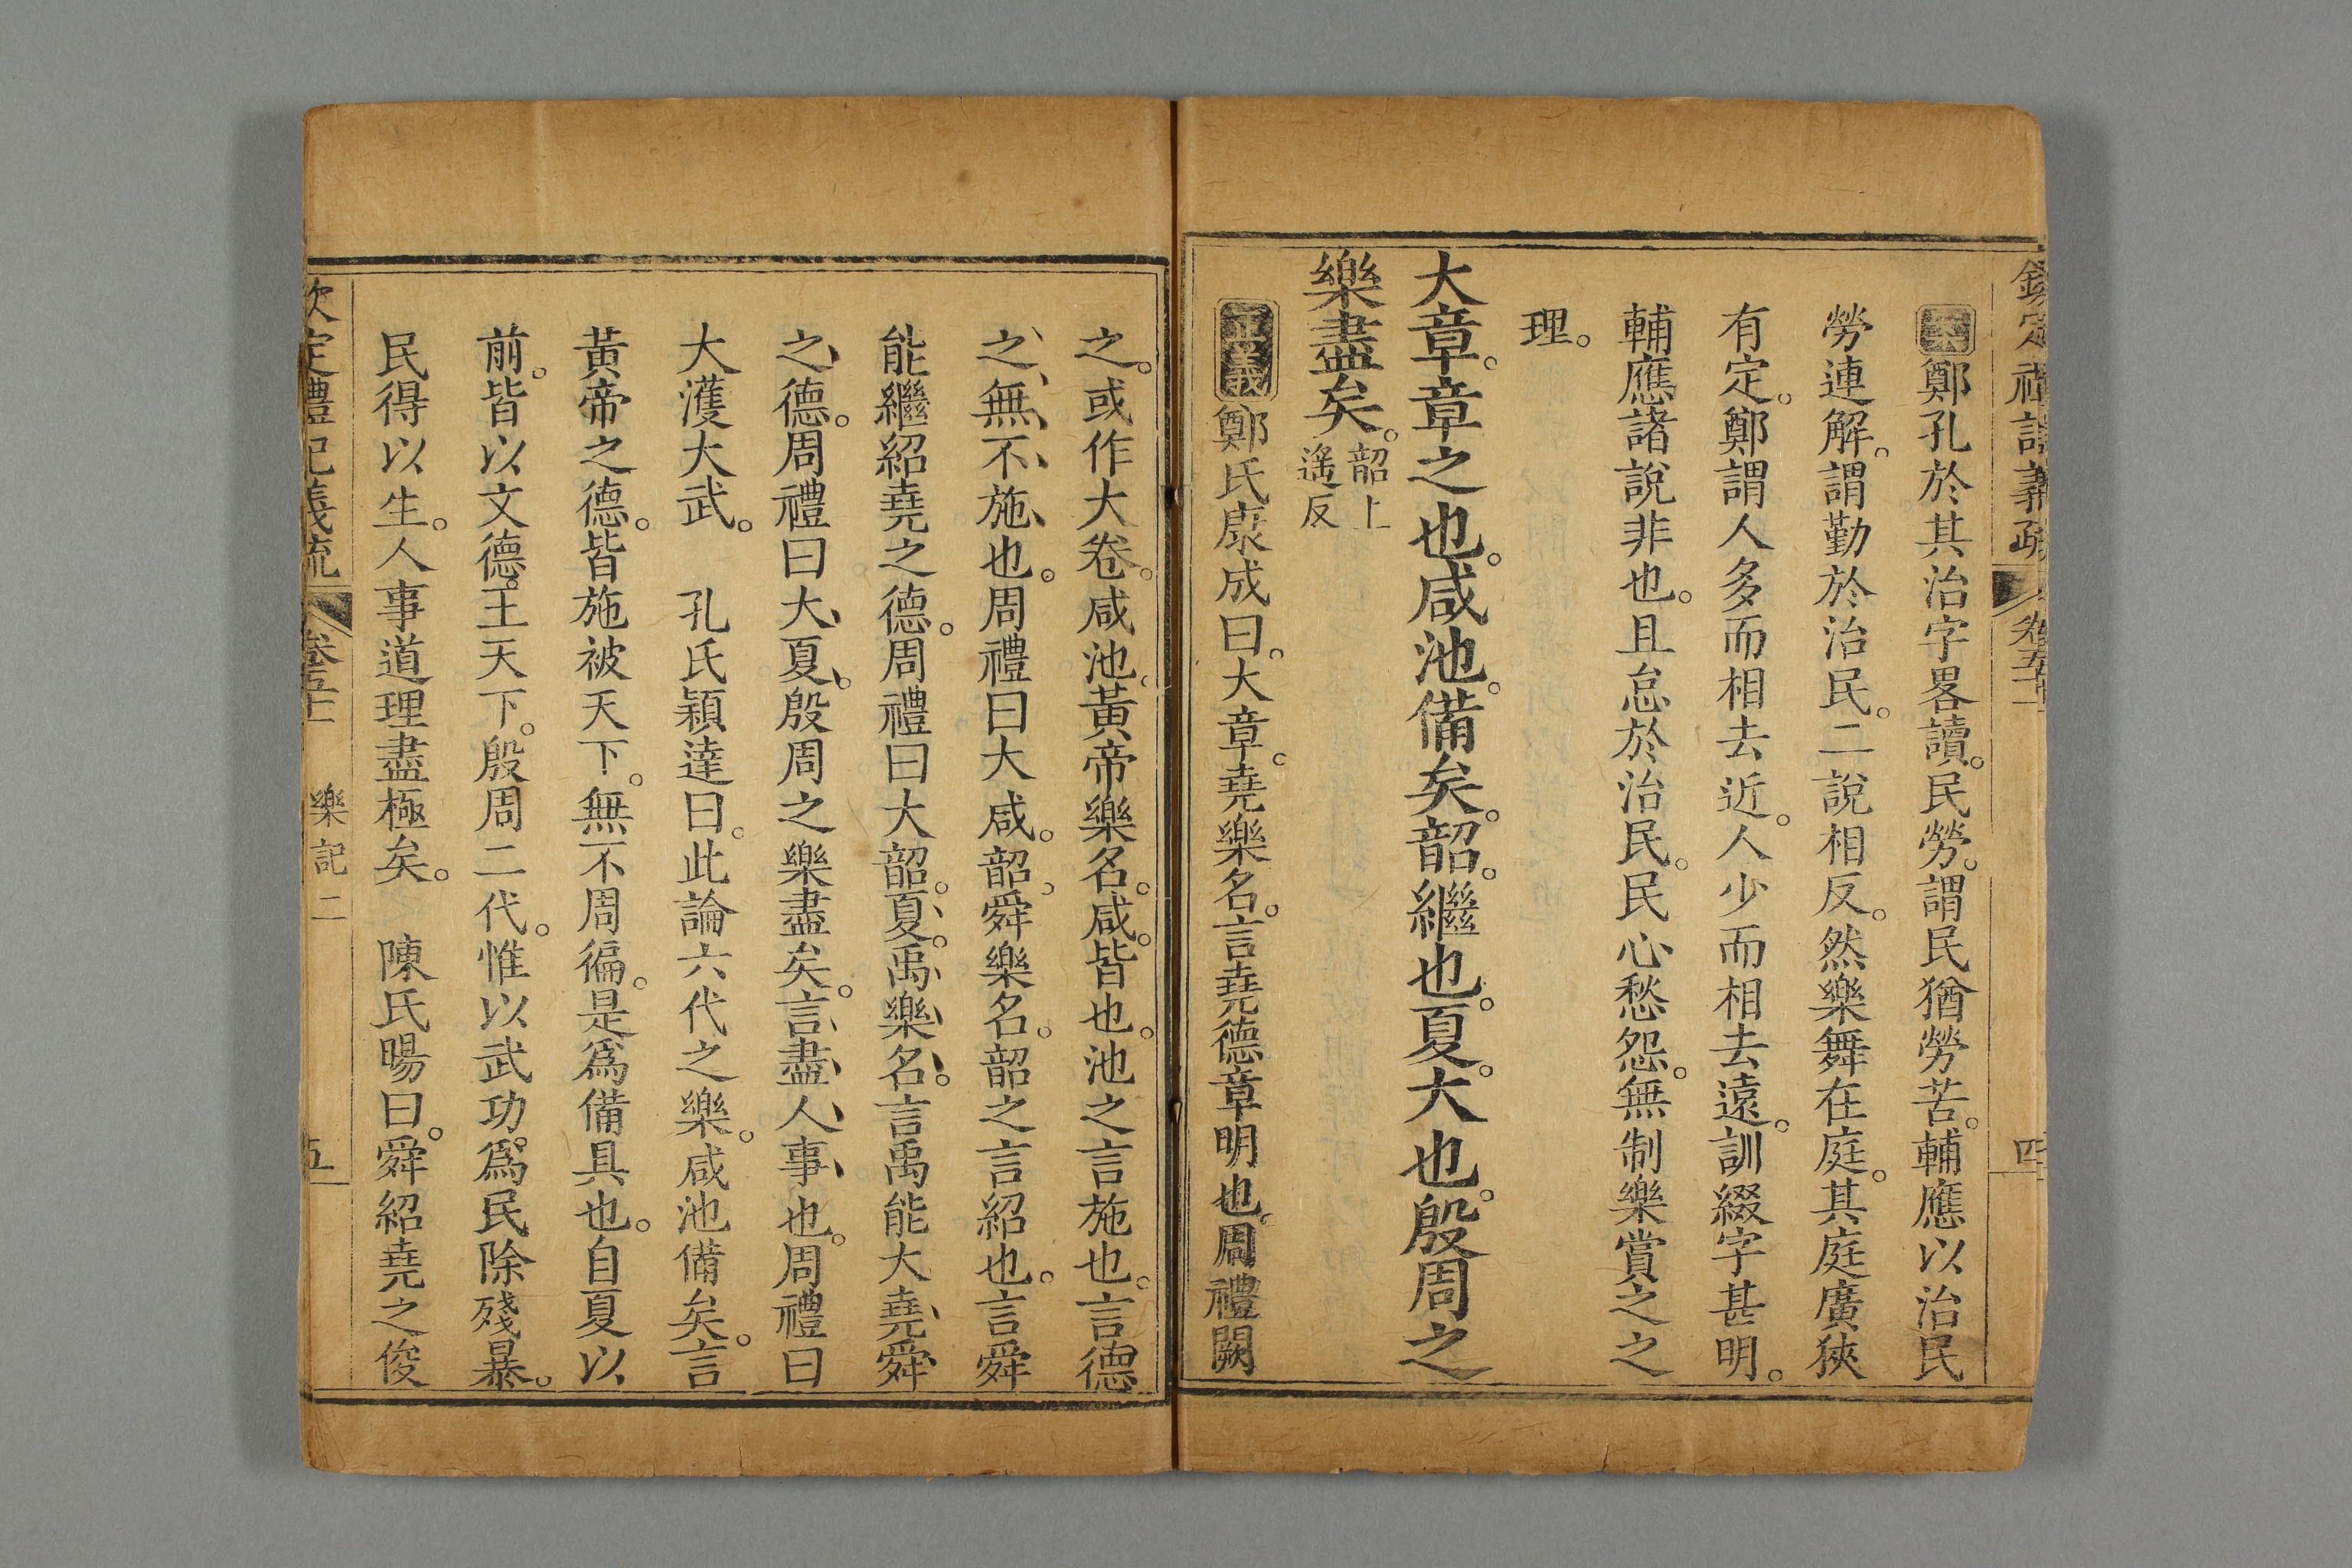 欽定禮記義疏 卷五十一 四
案鄭孔於其治字畧讀。民勞。謂民猶勞苦。輔應以治民
勞連解。謂勤於治民。二說相反。然樂舞在庭。其庭廣狹
有定。鄭謂人多而相去近。人少而相去遠。訓綴字甚明。
輔應諸說非也。且怠於治民。民心愁怨。無制樂賞之之
理。
大章。章之也。咸池。備矣。韶。繼也。夏。大也。殷周之
樂盡矣。韶上
遙反
正義鄭氏康成曰。大章。堯樂名。言堯德章明也。周禮闕
之。或作大卷。咸池。黃帝樂名。咸。皆也。池之言施也。言德
之、無、不、施、也。周禮曰大咸。韶。舜樂名。韶之言紹也。言舜
能繼紹堯之德。周禮曰大韶。夏。禹、樂、名。言禹能大堯、舜
之、德。周禮曰大、夏、。殷周之樂盡矣。言、盡、人、事、也。周禮曰
大濩大武。　孔氏穎達曰。此論六代之樂。咸池備矣。言
黃帝之德。皆施被天下。無不周徧。是爲備具也。自夏以
前。皆以文德。王天下。殷周二代。惟以武功。爲民除殘暴。
民得以生。人事道理盡極矣。　陳氏暘曰。舜紹堯之俊
欽定禮記義疏 卷五十一 樂記二 五